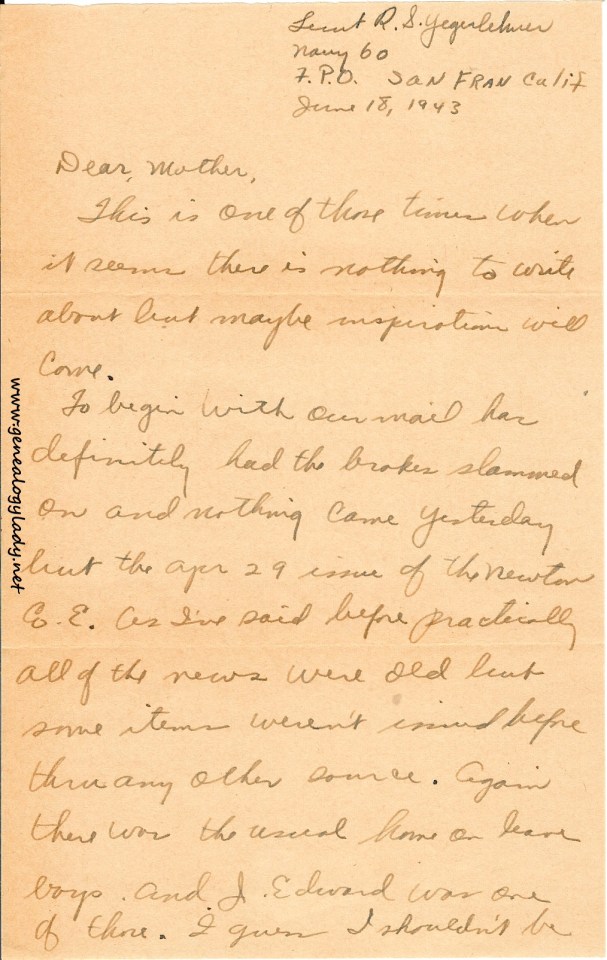 Lieut R. S. Yegerlehner
Navy 60
F.P.O. SAN FRAN Calif
June 18, 1943
Dear, Mother,
This is one of those times when
it seems there is nothing to write
about but maybe inspiration will
come.
To begin with our mail has
definitely had the brakes slammed
on and nothing came yesterday
but the Apr 29 issue of the Newton
C.E. As I've said before practically
all of the news were old but
some items weren't issued before
thru any other source. Again
there was the usual home on leave
boys. And J. Edward was one
of those. I guess I shouldn't be
www.genealogylady.net